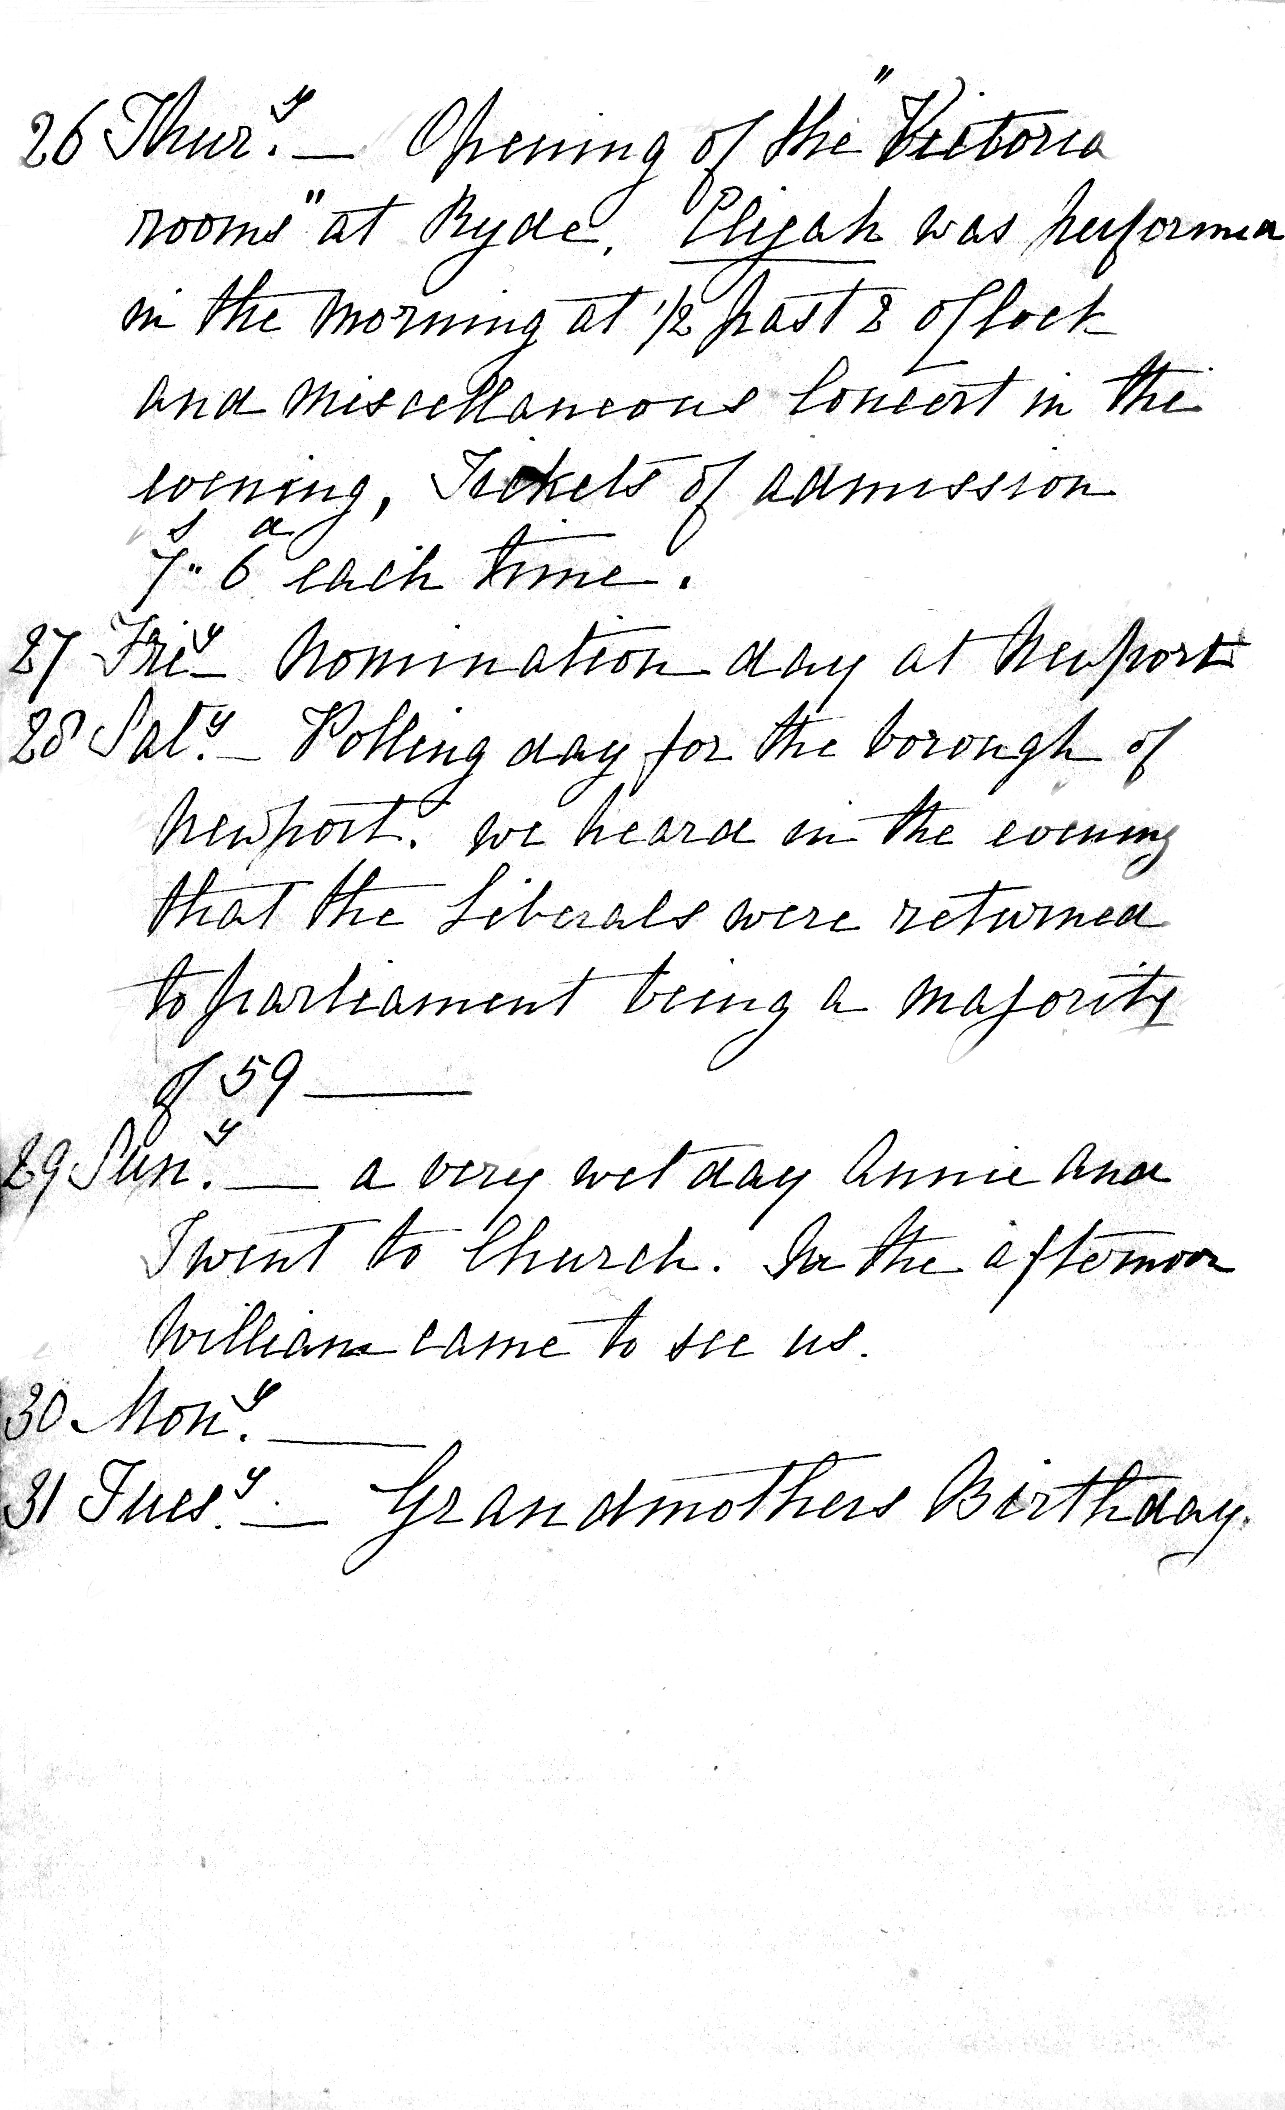 26 Thurˢ.ʸ — Opening of the "Victoria
rooms" at Ryde. Elijah was performed
in the morning at ½ past 2 o'clock
and miscellaneous Concert in the
evening, Tickets of admission
7ˢ" 6ᵈ each time.
27 Friʸ — Nomination day at Newport
28 Sat.ʸ — Polling day for the borough of
Newport. We heard in the evening
that the Liberals were returned
to parliament being a majority
of 59 —
29 Sun.ʸ — a very wet day Annie and
I went to Church. In the afternoon
William came to see us.
30 Mon.ʸ —
31 Tues.ʸ — Grandmothers Birthday.